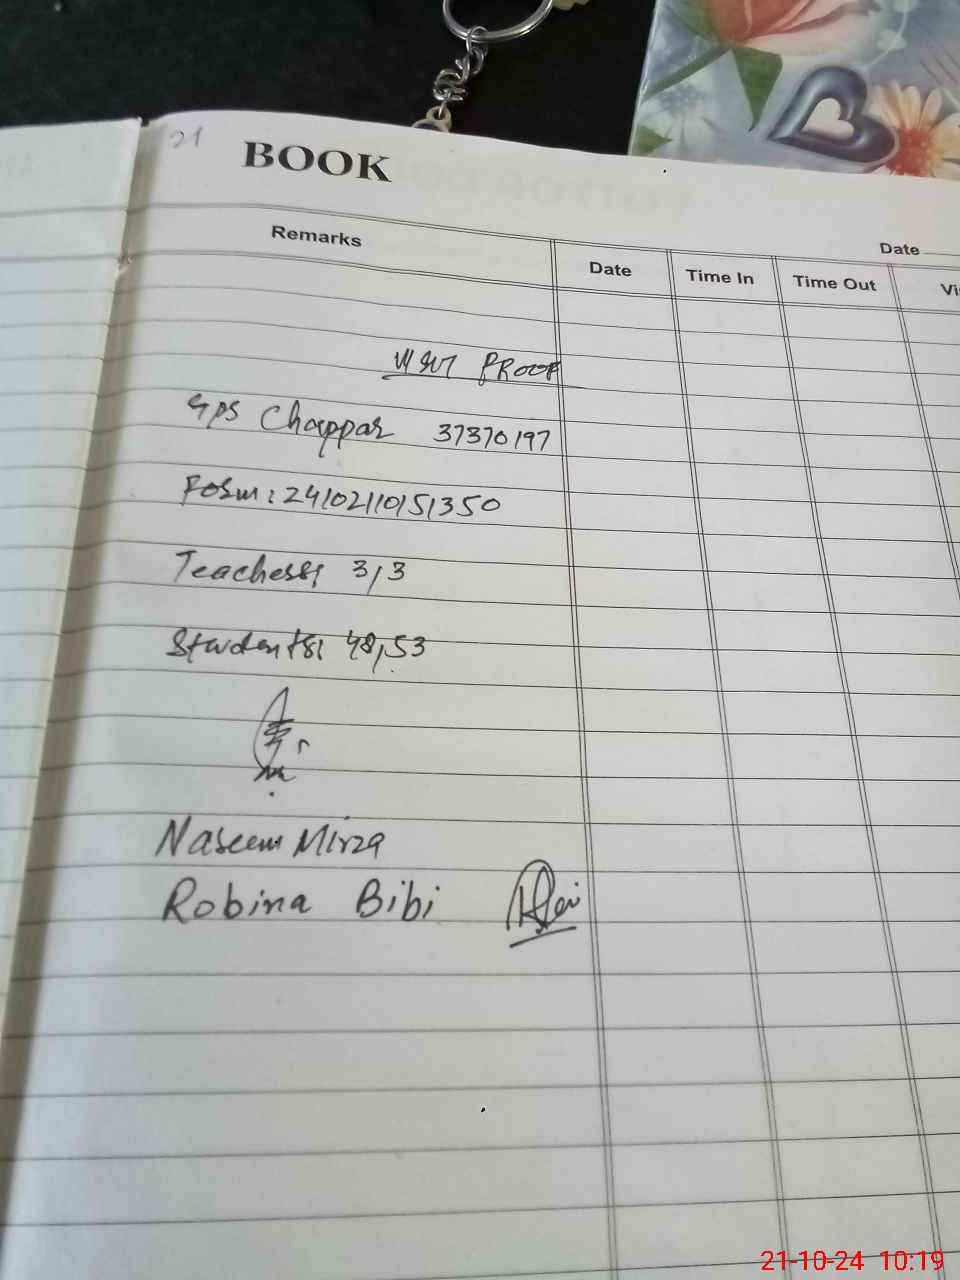 21
BOOK
Date
Remarks
Date
Time In
Time Out
Vi
VISIT PROOF
GPS Chappar 37370197
Form: 24102110151350
Teachers: 3/3
Students: 48,53
Naseem Mirza
Robina Bibi
21-10-24 10:19